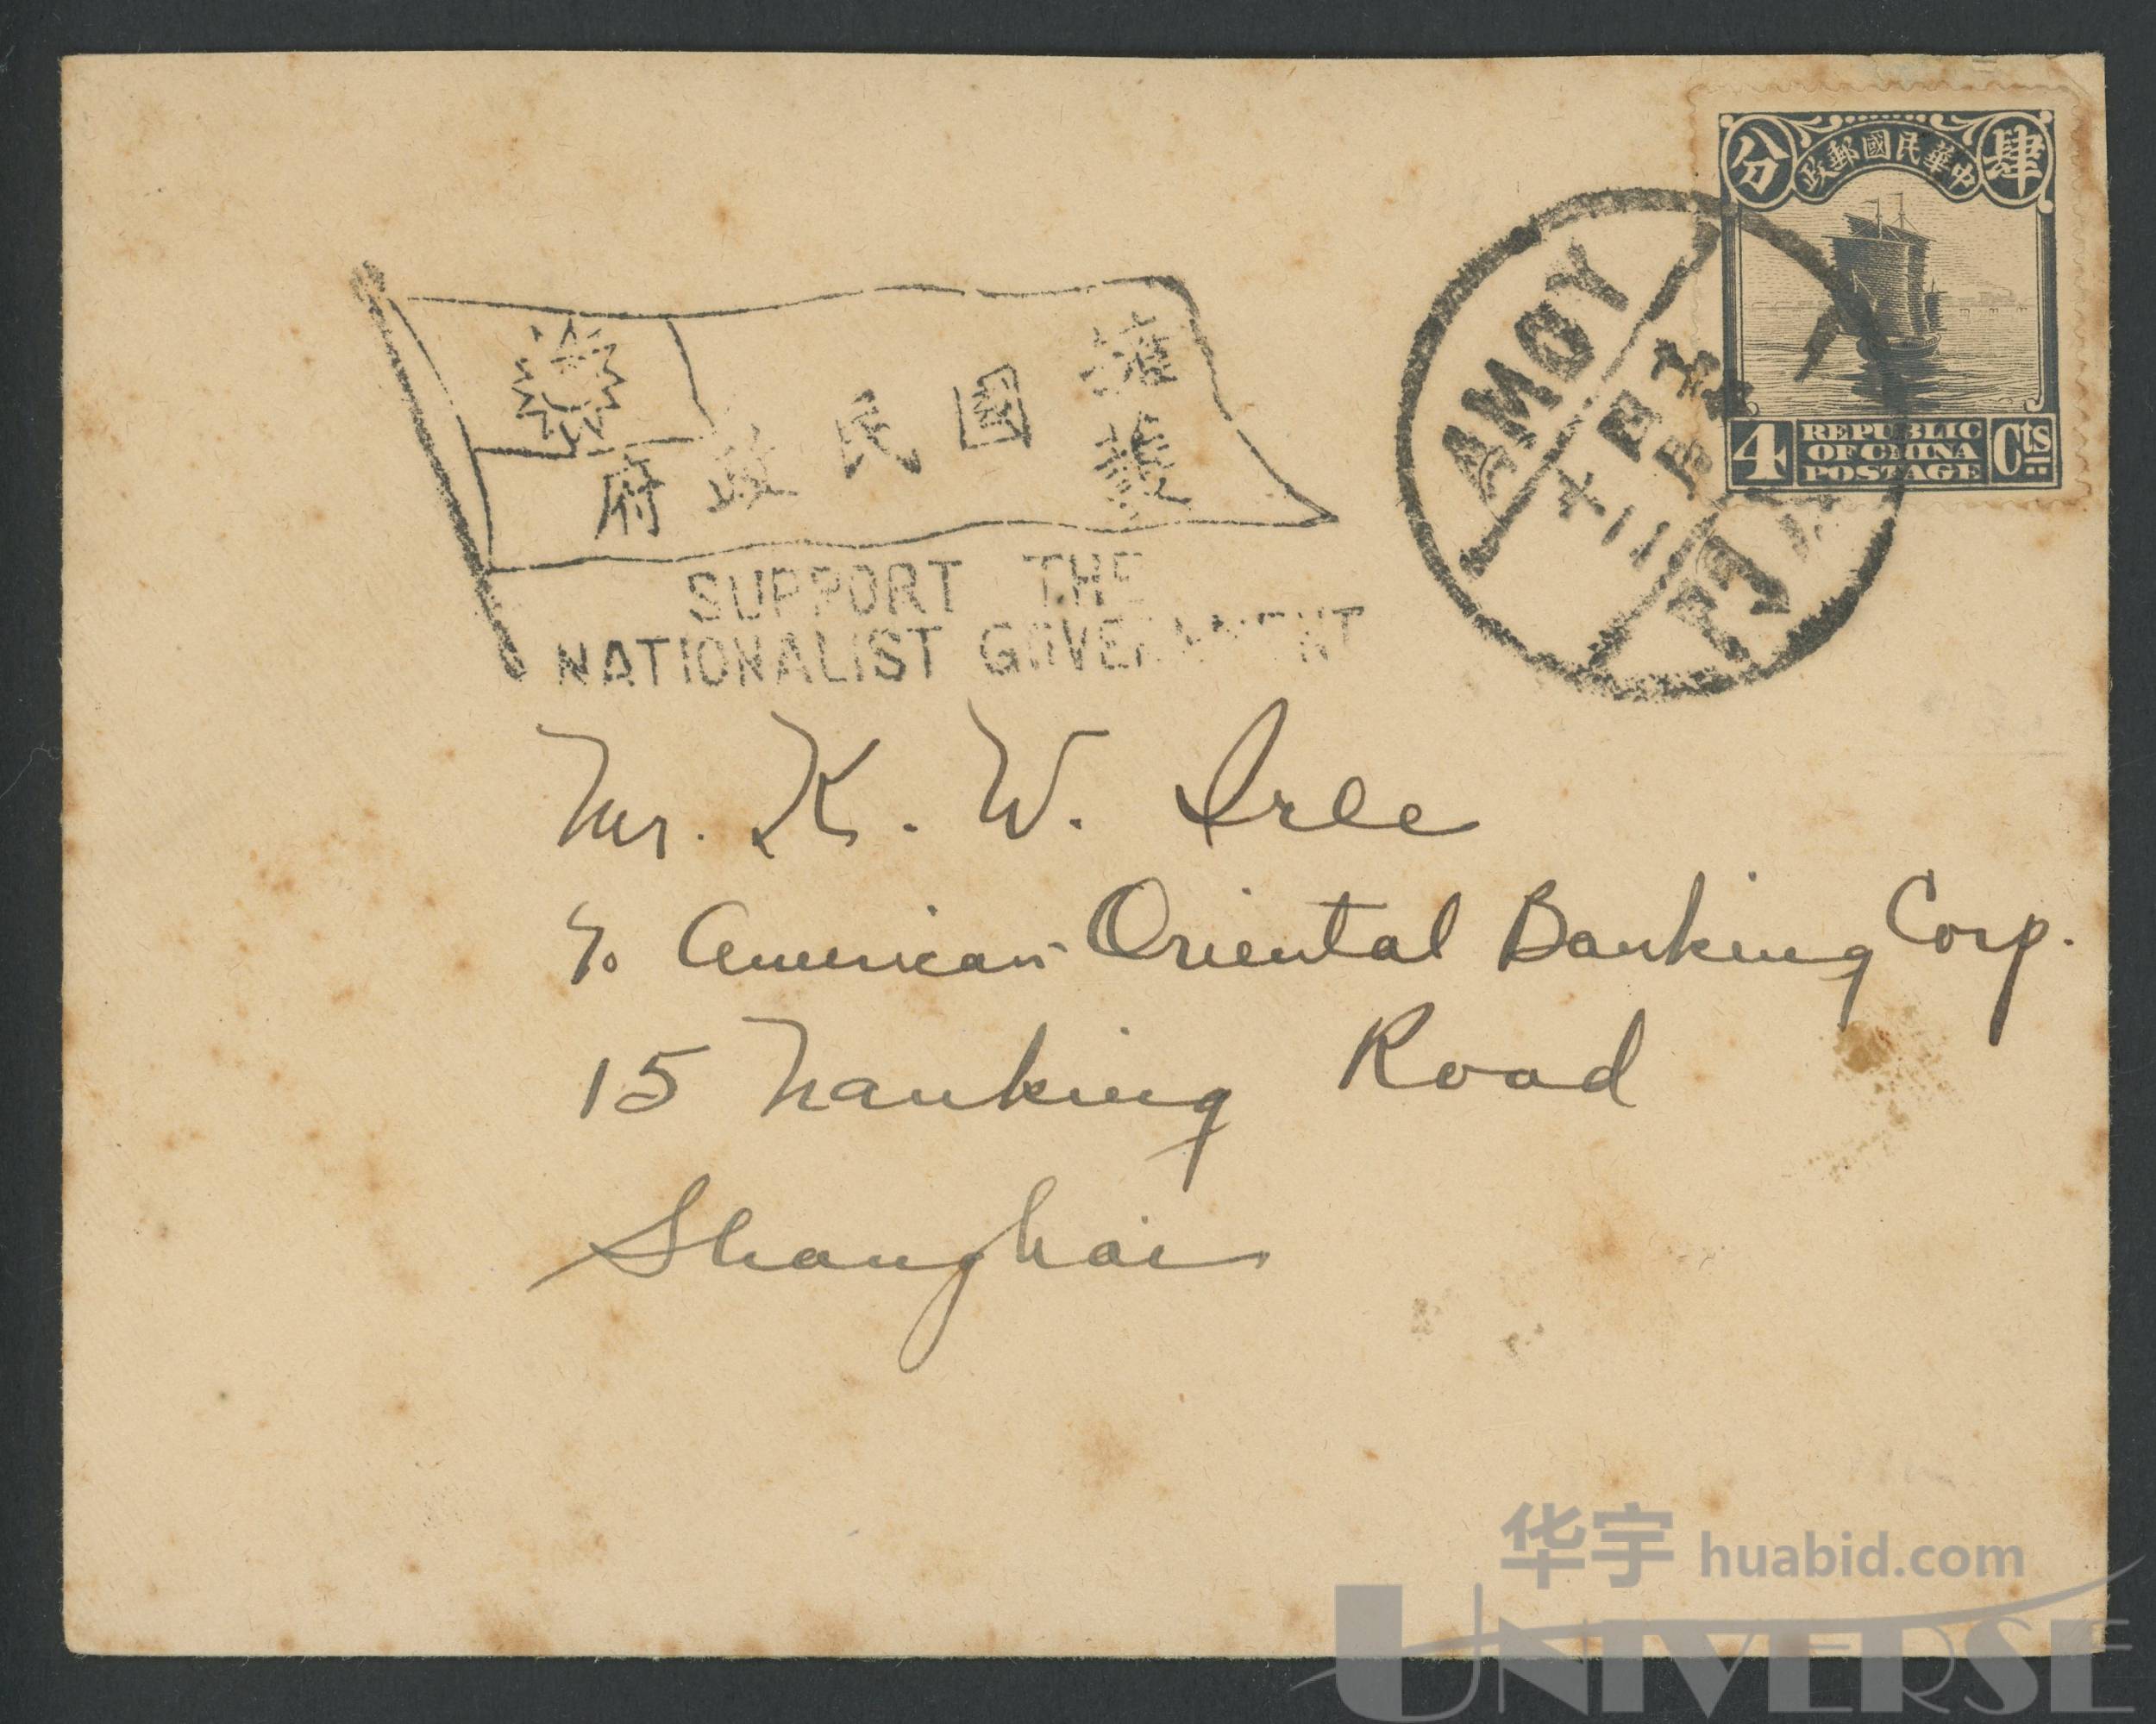 分 中華民國郵政 肆
4 REPUBLIC OF CHINA POSTAGE Cts
AMOY
門
廈
擁護
國民政府
SUPPORT THE
NATIONALIST GOVERNMENT
Mr. K. W. Irle
c/o American-Oriental Banking Corp.
15 Nanking Road
Shanghai
华宇 huabid.com
UNIVERSE